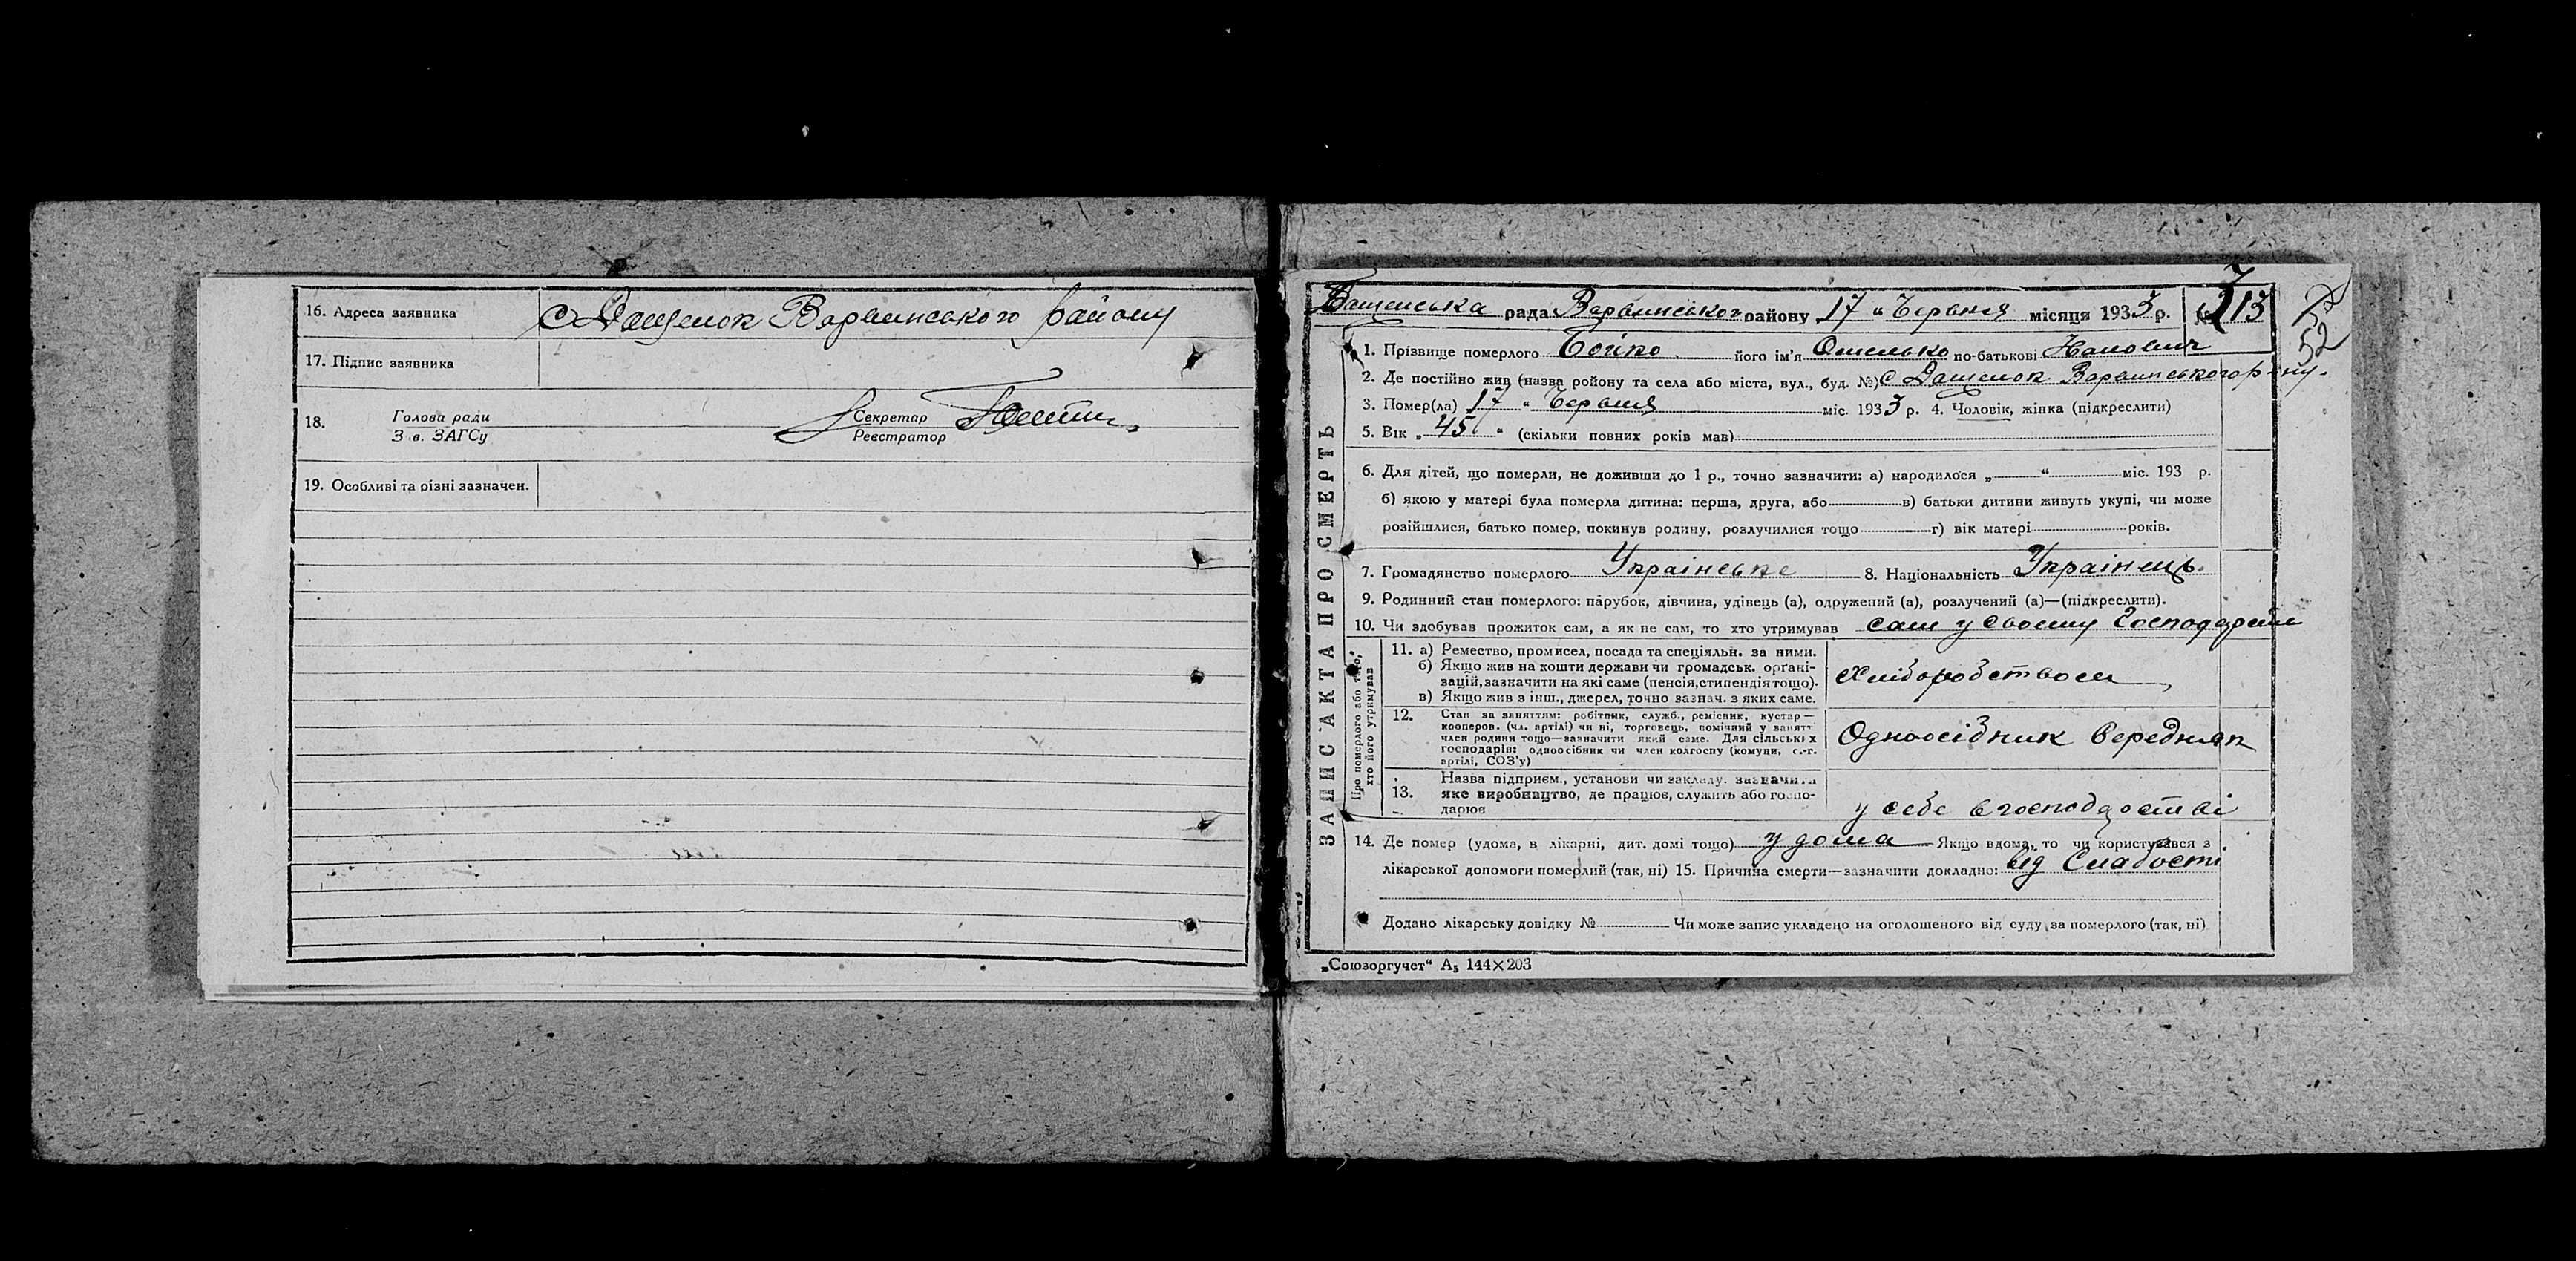 16. Адреса заявника с Дащенок Варвинського району
17. Підпис заявника
18. Голова ради Секретар
З в. ЗАГСу Реєстратор
19. Особливі та різні зазначен.
ЗАПИС АКТА ПРО СМЕРТЬ
Дащенська рада Варвинського району „17“ Червня місяця 1933 р. № 113
52
1. Прізвище померлого Бойко його ім'я Омелько по-батькові
2. Де постійно жив (назва ройону та села або міста, вул., буд. №) с Дащенок Варвинського р-ну.
3. Помер(ла) „17“ Червня міс. 1933 р. 4. Чоловік, жінка (підкреслити)
5. Вік „45“ (скільки повних років мав)
6. Для дітей, що померли, не доживши до 1 р., точно зазначити: а) народилося „ “ міс. 193 р.
б) якою у матері була померла дитина: перша, друга, або в) батьки дитини живуть укупі, чи може
розійшлися, батько помер, покинув родину, розлучилися тощо г) вік матері років.
7. Громадянство померлого Українське 8. Національність Українець.
9. Родинний стан померлого: парубок, дівчина, удівець (а), одружений (а), розлучений (а)—(підкреслити).
10. Чи здобував прожиток сам, а як не сам, то хто утримував сам у своєму господарстві
Про померлого або того, хто його утримував
11. а) Ремество, промисел, посада та спеціяльн. за ними.
б) Якщо жив на кошти держави чи громадськ. орґані-
зацій, зазначити на які саме (пенсія, стипендія тощо).
в) Якщо жив з інш., джерел, точно зазнач. з яких саме.
Хліборобством
12. Стан за заняттям: робітник, служб., ремісник, кустар—
кооперов. (чл. артілі) чи ні, торговець, помічний у занятт
член родини тощо—зазначити який саме. Для сільських
господарів: одноосібник чи член колгоспу (комуни, с.-г.
артілі, СОЗ'у)
Одноосібник Середняк
13. Назва підприєм., установи чи закладу. зазначити
яке виробництво, де працює, служить або госпо-
дарює
у себе в господарстві
14. Де помер (удома, в лікарні, дит. домі тощо) у дома Якщо вдома, то чи користувався з
лікарської допомоги померлий (так, ні) 15. Причина смерти—зазначити докладно: від Слабості
Додано лікарську довідку № Чи може запис укладено на оголошеного від суду за померлого (так, ні)
„Союзоргучет“ А₅ 144×203